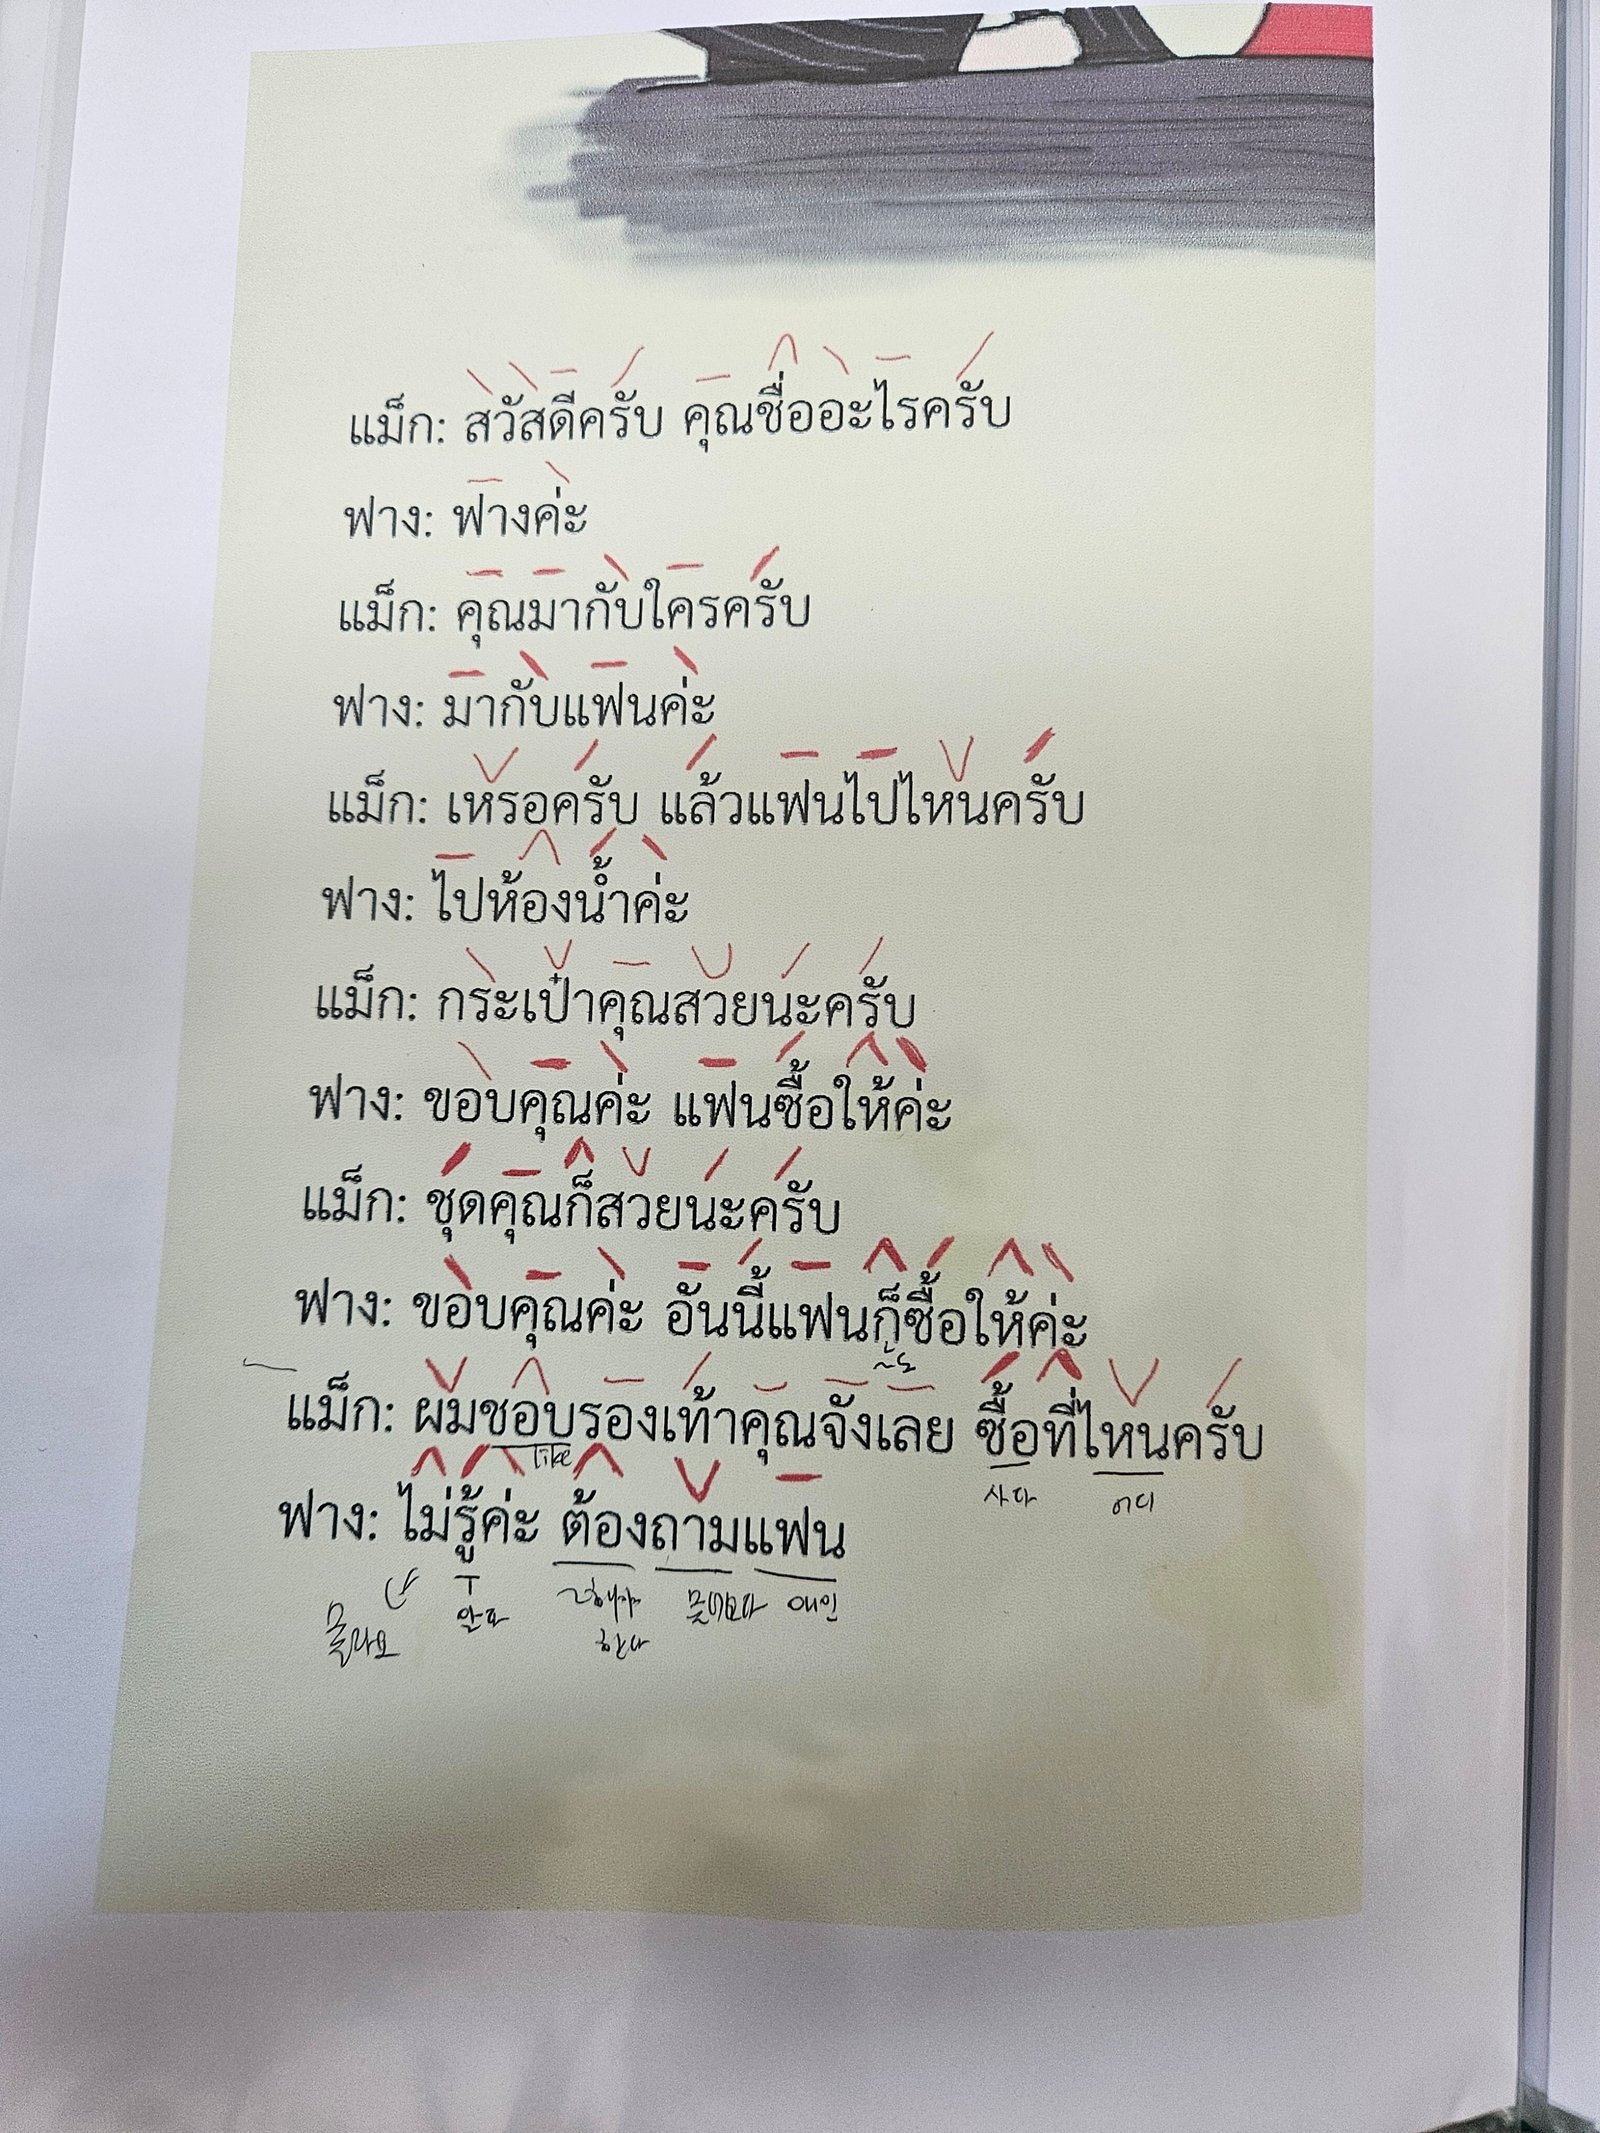 แม็ก: สวัสดีครับ คุณชื่ออะไรครับ
ฟาง: ฟางค่ะ
แม็ก: คุณมากับใครครับ
ฟาง: มากับแฟนค่ะ
แม็ก: เหรอครับ แล้วแฟนไปไหนครับ
ฟาง: ไปห้องน้ำค่ะ
แม็ก: กระเป๋าคุณสวยนะครับ
ฟาง: ขอบคุณค่ะ แฟนซื้อให้ค่ะ
แม็ก: ชุดคุณก็สวยนะครับ
ฟาง: ขอบคุณค่ะ อันนี้แฟนก็ซื้อให้ค่ะ
แม็ก: ผมชอบรองเท้าคุณจังเลย ซื้อที่ไหนครับ
like
사다 어디
ฟาง: ไม่รู้ค่ะ ต้องถามแฟน
몰라요 알다 물어보다 애인